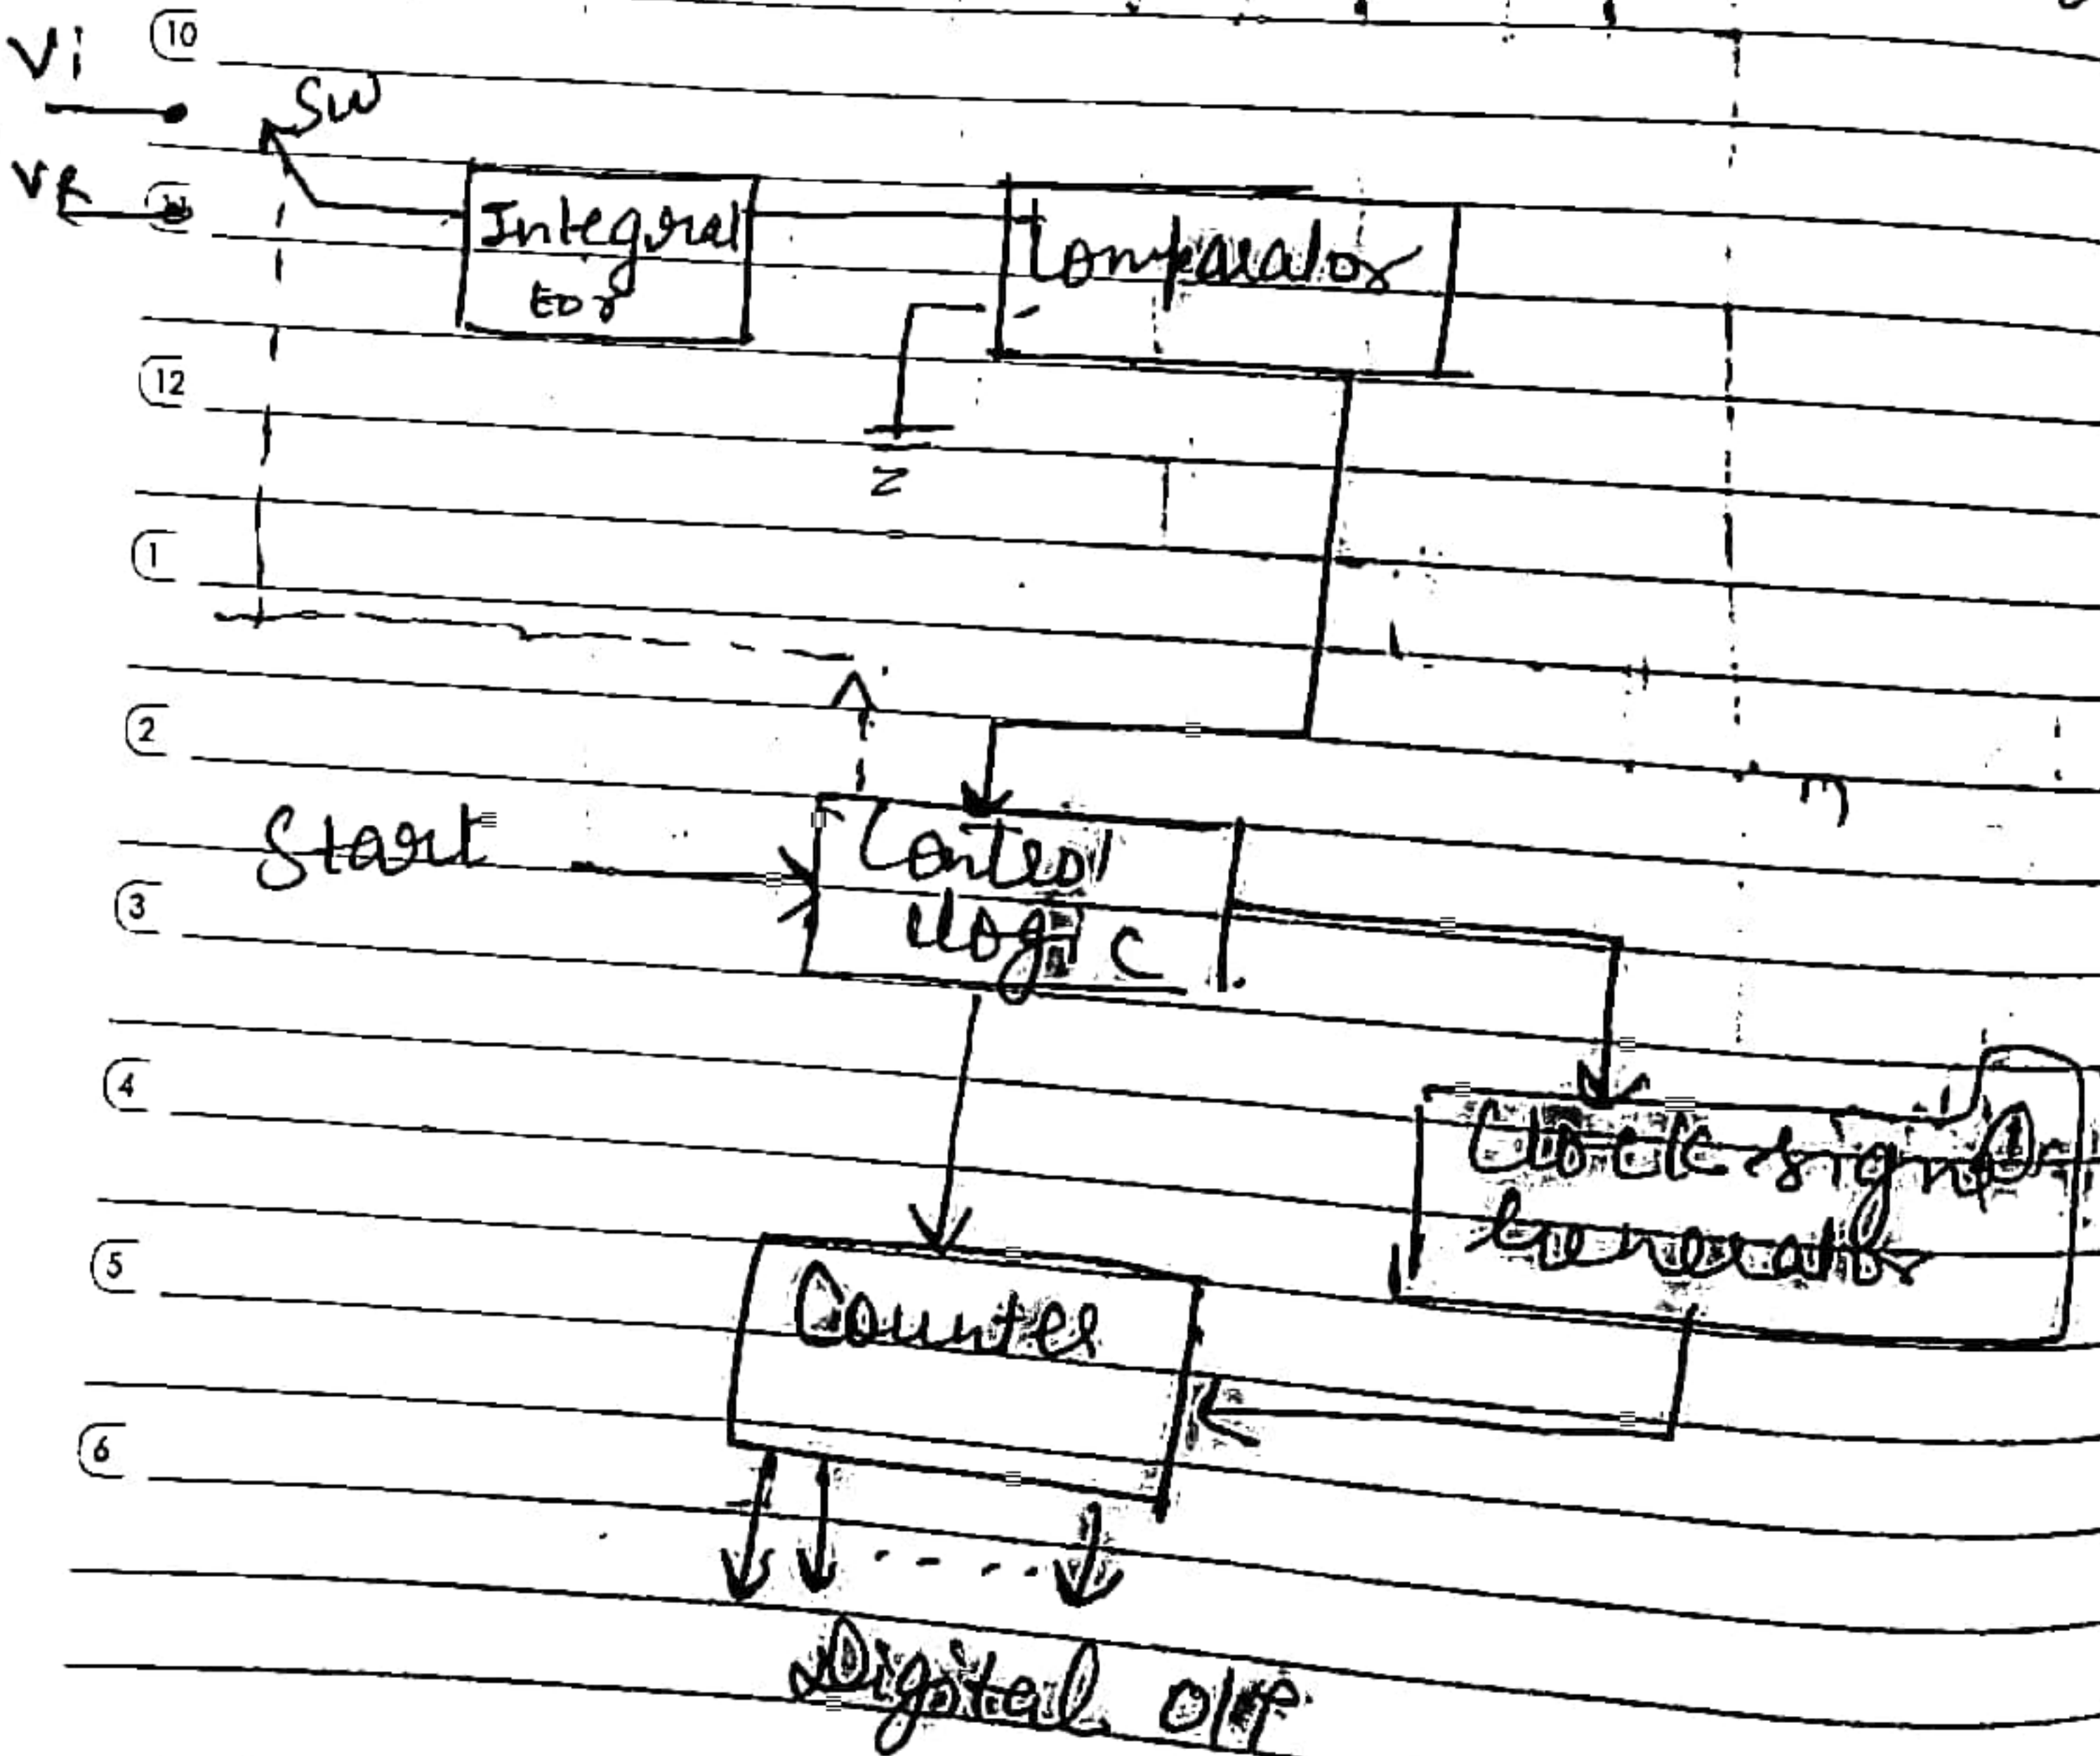 10
Vi
SW
VR
Integral
tor
+
Comparator
-
12
1
2
Start
Control
logic
3
4
Clock signal
Generator
5
Counter
6
Digital O/P